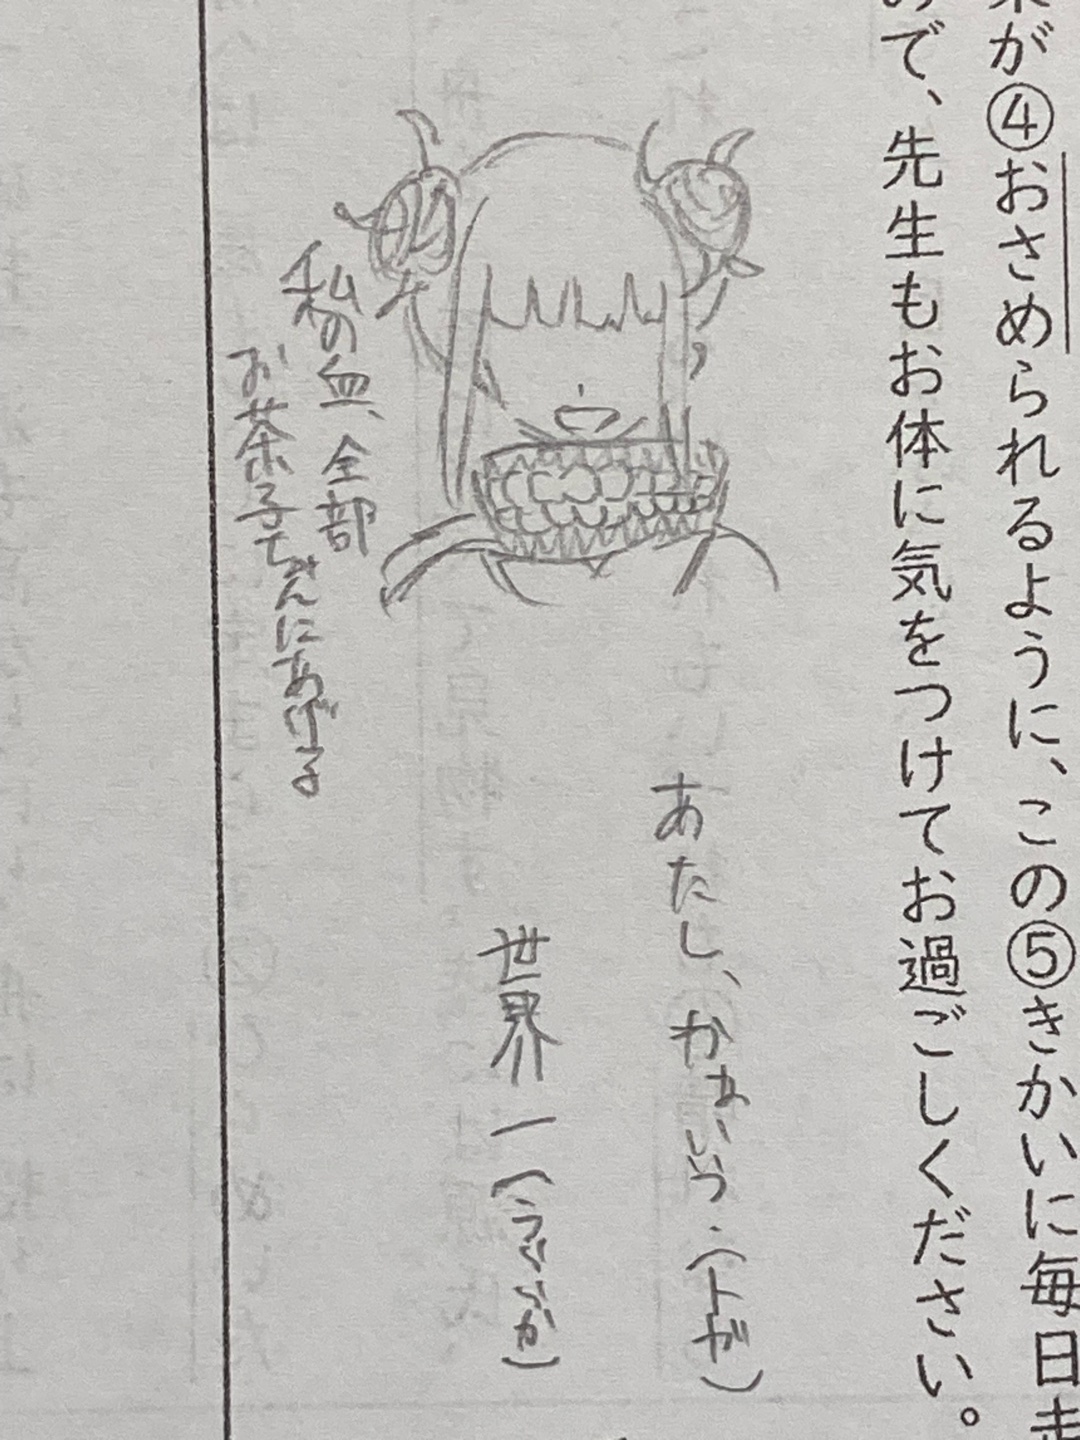 が④おさめられるように、この⑤きかいに毎日走
で、先生もお体に気をつけてお過ごしください。
あたし、かぁいい?(トガ)
世界一(うららか)
私の血、全部
お茶子ちゃんにあげる